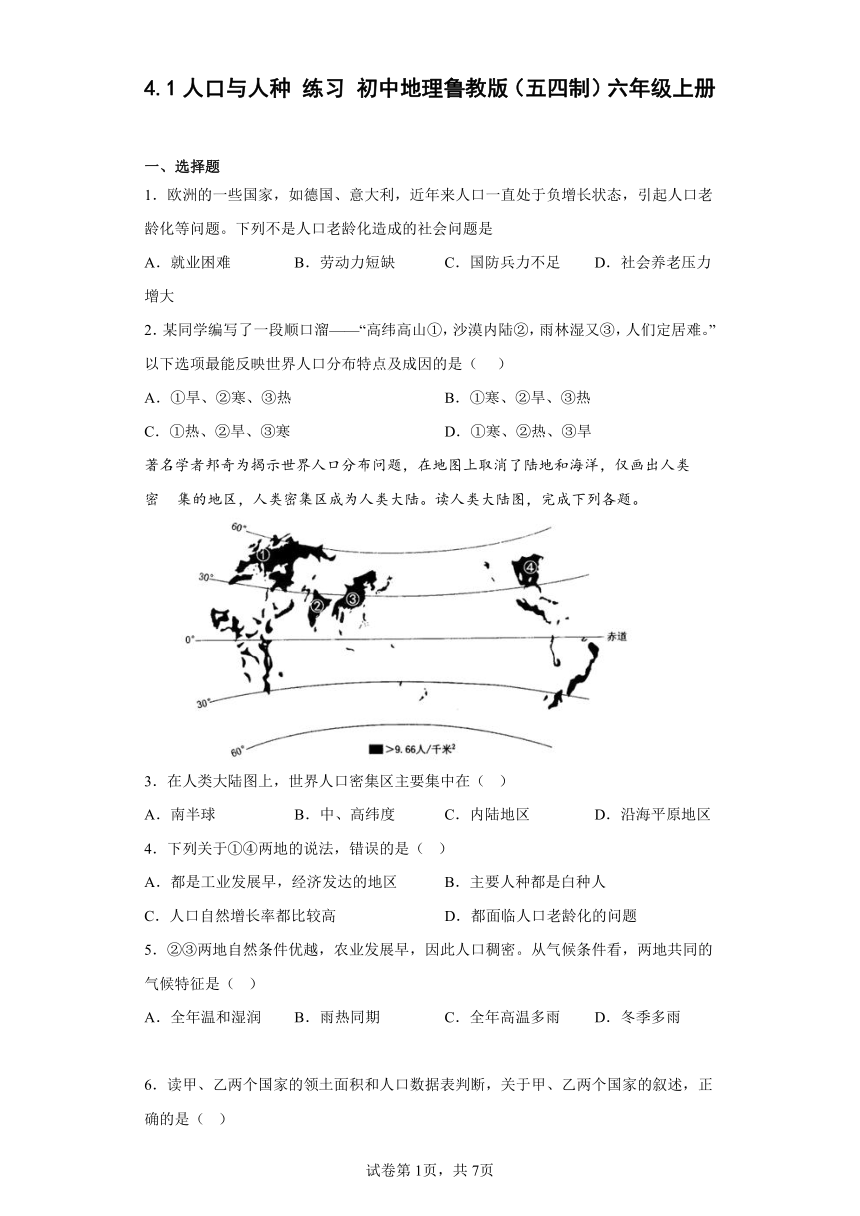 4.1人口与人种 练习 初中地理鲁教版（五四制）六年级上册
一、选择题
1．欧洲的一些国家，如德国、意大利，近年来人口一直处于负增长状态，引起人口老
龄化等问题。下列不是人口老龄化造成的社会问题是
A．就业困难 B．劳动力短缺 C．国防兵力不足 D．社会养老压力
增大
2．某同学编写了一段顺口溜——“高纬高山①，沙漠内陆②，雨林湿又③，人们定居难。”
以下选项最能反映世界人口分布特点及成因的是（ ）
A．①旱、②寒、③热 B．①寒、②旱、③热
C．①热、②旱、③寒 D．①寒、②热、③旱
著名学者邦奇为揭示世界人口分布问题，在地图上取消了陆地和海洋，仅画出人类
密 集的地区，人类密集区成为人类大陆。读人类大陆图，完成下列各题。
60°
①
④
30°
②
③
0°
赤道
30°
60°
>9.66人/千米²
3．在人类大陆图上，世界人口密集区主要集中在（ ）
A．南半球 B．中、高纬度 C．内陆地区 D．沿海平原地区
4．下列关于①④两地的说法，错误的是（ ）
A．都是工业发展早，经济发达的地区 B．主要人种都是白种人
C．人口自然增长率都比较高 D．都面临人口老龄化的问题
5．②③两地自然条件优越，农业发展早，因此人口稠密。从气候条件看，两地共同的
气候特征是（ ）
A．全年温和湿润 B．雨热同期 C．全年高温多雨 D．冬季多雨
6．读甲、乙两个国家的领土面积和人口数据表判断，关于甲、乙两个国家的叙述，正
确的是（ ）
试卷第1页，共7页